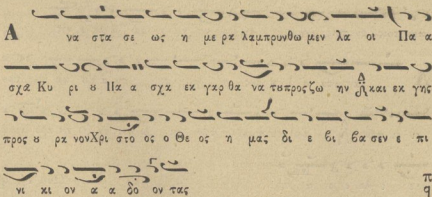 Α να στα σε ως η με ρα λαμπρυνθω μεν λα οι Πα α
σχα Κυ ρι ου Πα α σχα εκ γαρ θα να τουπροςζω ην και εκ γης
προς ου ρα νονΧρι στο ος ο Θε ος η μας δι ε βι βα σεν ε πι
νι κι ον α α δο ον τας